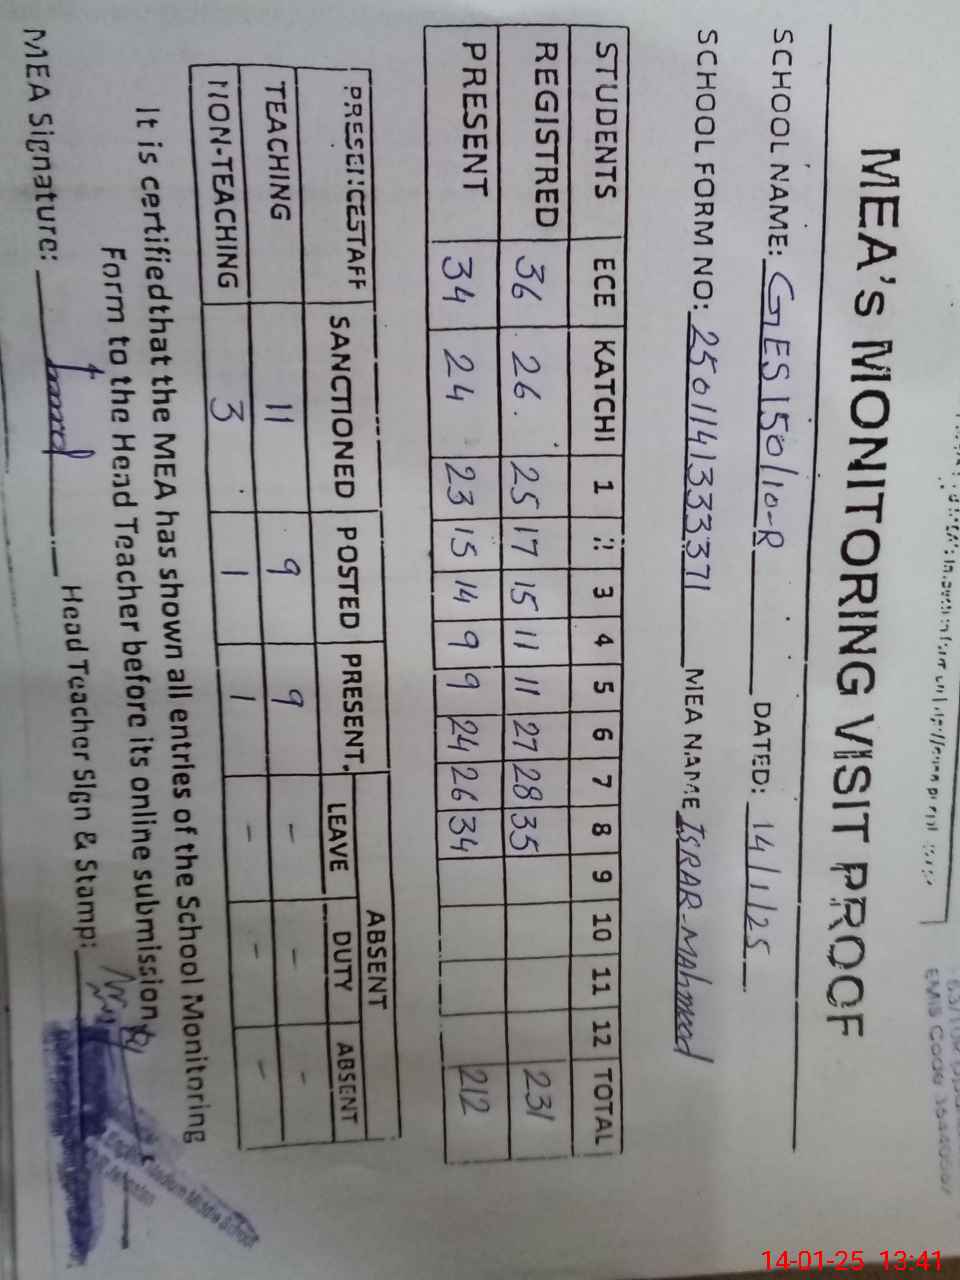 MEA'S MONITORING VISIT PROOF
SCHOOL NAME: GES 150/10-R DATED: 14/1/25
SCHOOL FORM NO: 2501141333371 MEA NAME ISRAR-Mahmood
STUDENTS ECE KATCHI 1 2 3 4 5 6 7 8 9 10 11 12 TOTAL
REGISTRED 36 26. 25 17 15 11 11 27 28 35 231
PRESENT 34 24 23 15 14 9 9 24 26 34 212
PRESENCESTAFF SANCTIONED POSTED PRESENT ABSENT
LEAVE DUTY ABSENT
TEACHING 11 9 9 - - -
NON-TEACHING 3 1 1 - - -
It is certifiedthat the MEA has shown all entries of the School Monitoring
Form to the Head Teacher before its online submission
MEA Signature: Head Teacher Sign & Stamp:
English Medium Middle School
EMIS Code
14-01-25 13:41